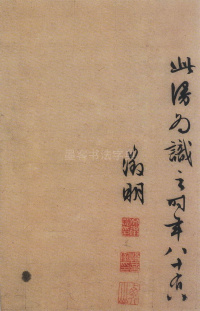 此漫為識之時年八十有八
徵明